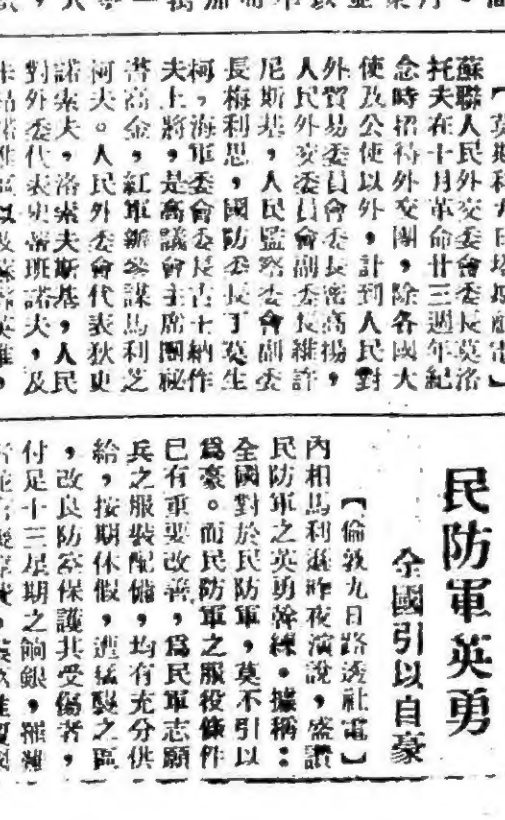 【莫斯科九日塔斯社電】
蘇聯人民外交委會委長莫洛
托夫在十月革命廿三週年紀
念時招待外交團，除各國大
使及公使以外，計到人民對
外貿易委員會委長密高揚，
人民外交委員會副委長維許
尼斯基，人民監察委會副委
長梅利思，國防委長丁莫生
柯，海軍委會委長古士納作
夫上將，是高議會主席團祕
書高金，紅軍新參謀馬利芝
柯夫。人民外委會代表狄更
諾索夫，洛索夫斯基，人民
對外委代表史蒂班諾夫，及
民防軍英勇
全國引以自豪
【倫敦九日路透社電】
內相馬利遜昨夜演說，盛讚
民防軍之英勇幹練。據稱：
全國對於民防軍，莫不引以
爲豪。而民防軍之服役條件
已有重要改善，爲民軍志願
兵之服裝配備，均有充分供
給，按期休假，遭猛襲之區
，改良防空保護其受傷者，
付足十三星期之餉銀，